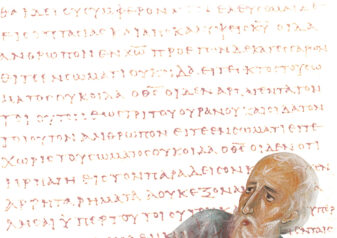 ΘΑΙ ΔΕΙ ΟΥ ΣΥΜΦΕΡΟΝ ΕΛΕΥΣΟΜΑΙ
ΕΙΣ ΟΠΤΑΣΙΑΣ ΚΑΙ ΑΠΟΚΑΛΥΨΕΙΣ Κ̅Υ̅ ΟΙΔΑ
ΑΝΘΡΩΠΟΝ ΕΝ Χ̅Ω̅ ΠΡΟ ΕΤΩΝ ΔΕΚΑΤΕΣΣΑΡΩΝ
ΕΙΤΕ ΕΝ ΣΩΜΑΤΙ ΟΥΚ ΟΙΔΑ ΕΙΤΕ ΕΚΤΟΣ ΤΟΥ ΣΩ
ΜΑΤΟΣ ΟΥΚ ΟΙΔΑ Ο Θ̅Σ̅ ΟΙΔΕΝ ΑΡΠΑΓΕΝΤΑ ΤΟΝ
ΤΟΙΟΥΤΟΝ ΕΩΣ ΤΡΙΤΟΥ ΟΥΡΑΝΟΥ ΚΑΙ ΟΙΔΑ ΤΟΝ
ΤΟΙΟΥΤΟΝ ΑΝΘΡΩΠΟΝ ΕΙΤΕ ΕΝ ΣΩΜΑΤΙ ΕΙΤΕ
ΧΩΡΙΣ ΤΟΥ ΣΩΜΑΤΟΣ ΟΥΚ ΟΙΔΑ Ο Θ̅Σ̅ ΟΙΔΕΝ ΟΤΙ
ΗΡΠΑΓΗ ΕΙΣ ΤΟΝ ΠΑΡΑΔΕΙΣΟΝ
ΑΡΡΗΤΑ ΡΗΜΑΤΑ Α ΟΥΚ ΕΞΟΝ
ΛΗΣΑΙ ΥΠΕΡ ΤΟΥ ΤΟΙΟΥΤΟΥ ΥΠΕΡ